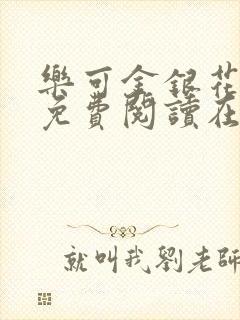 樂可金銀花
免費閱讀在
就叫我劉老師